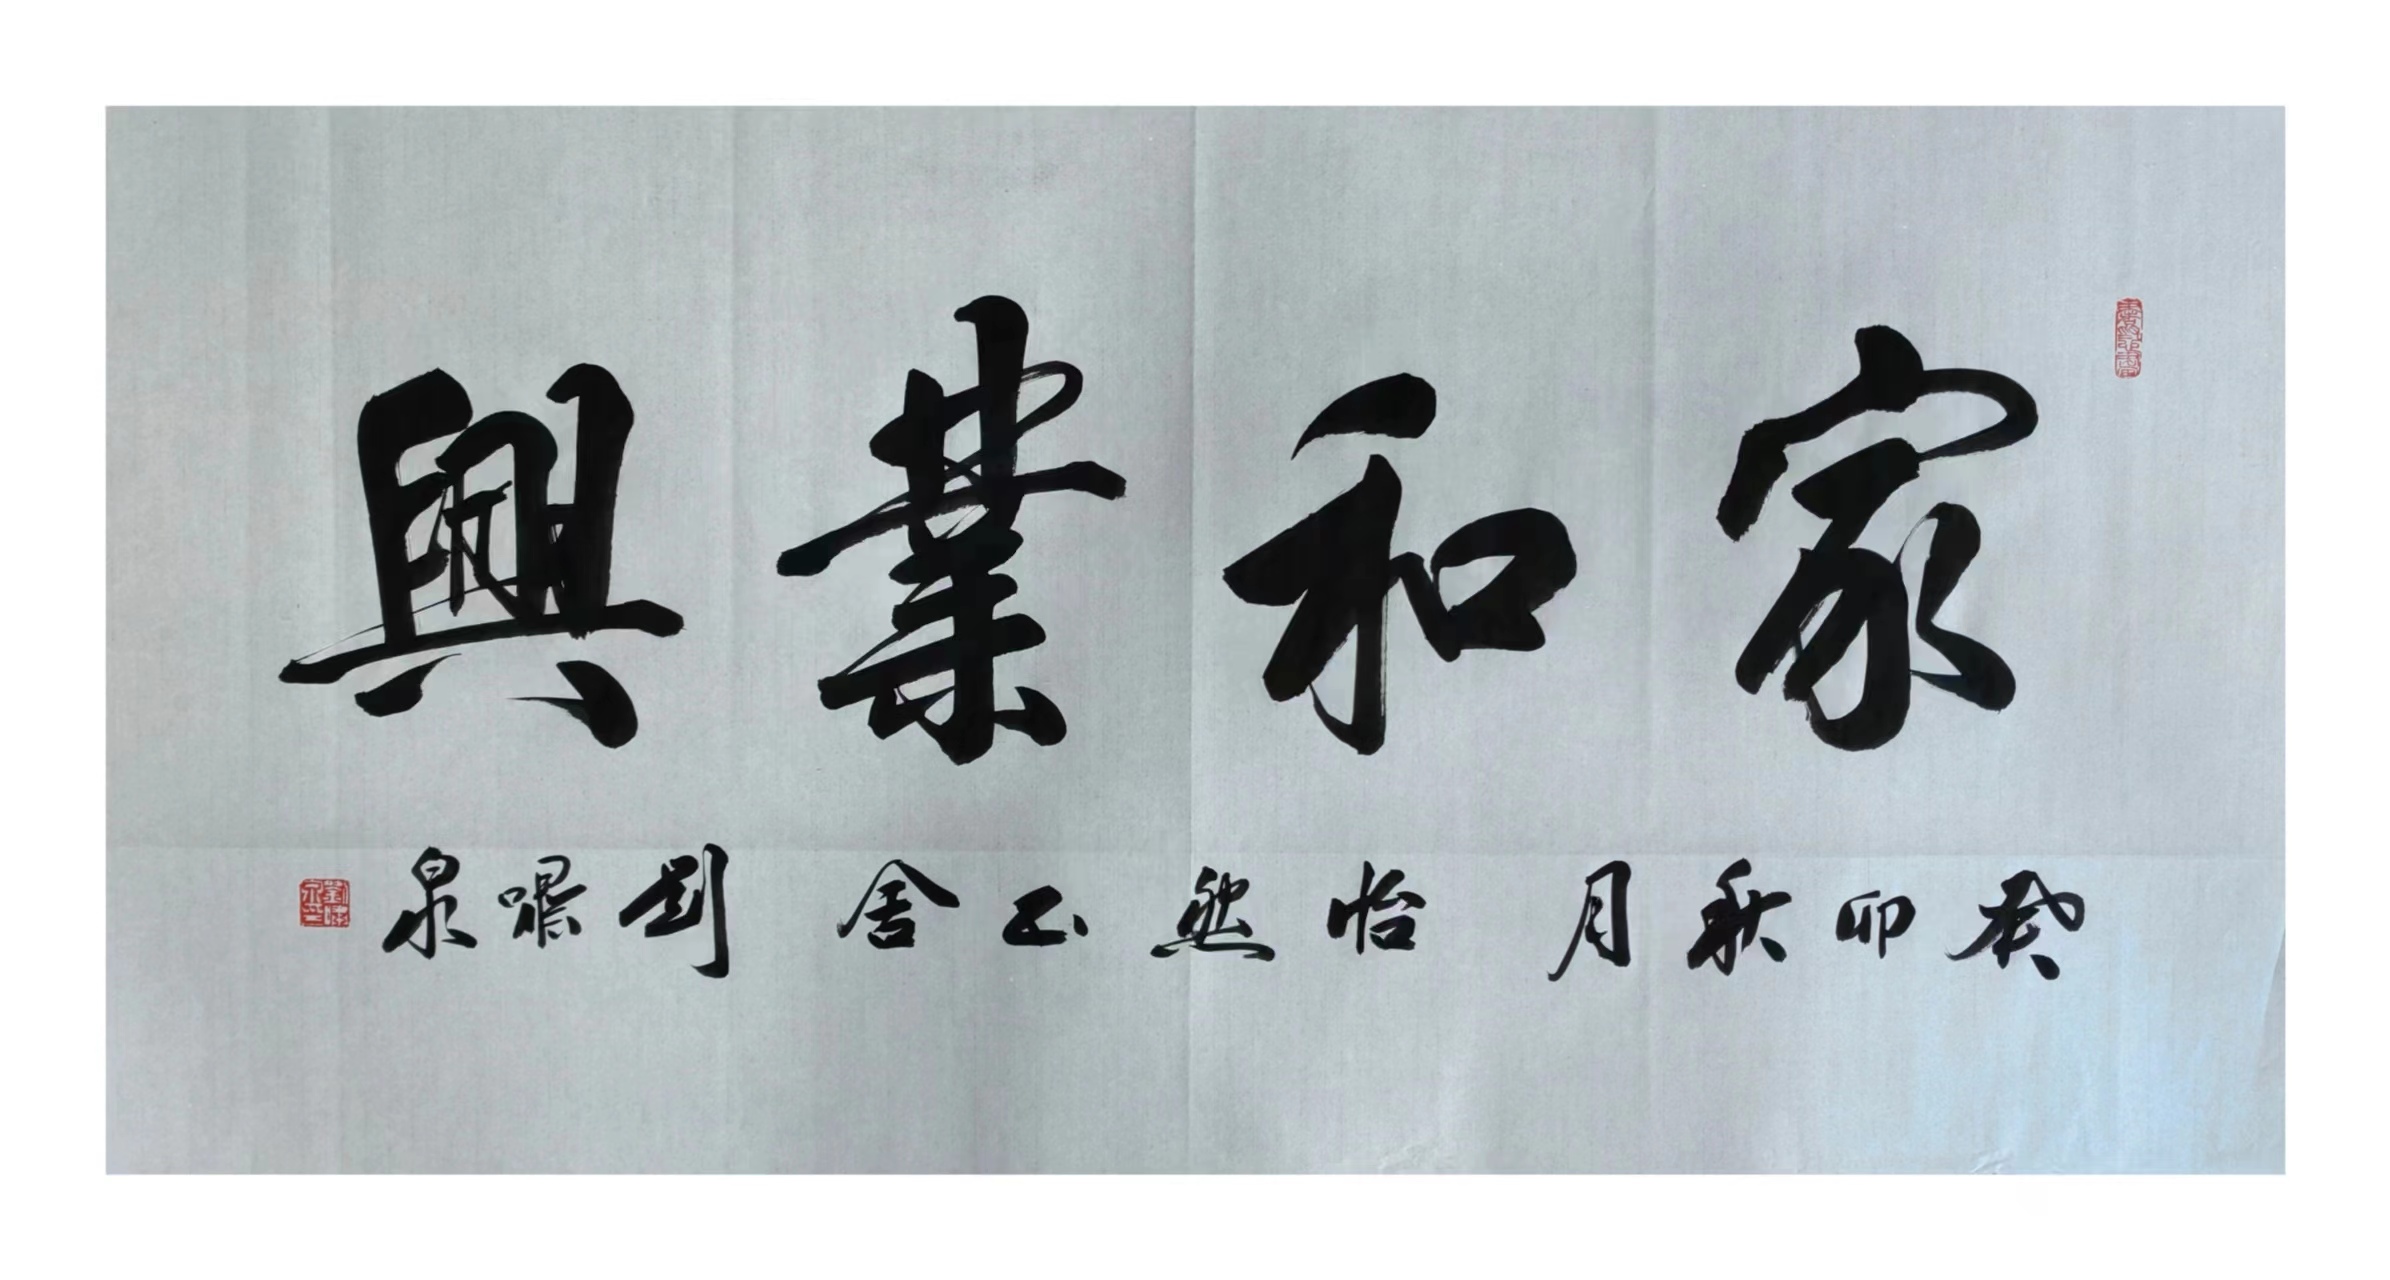 家和業興
癸卯秋月 怡然 舍 劉 泉